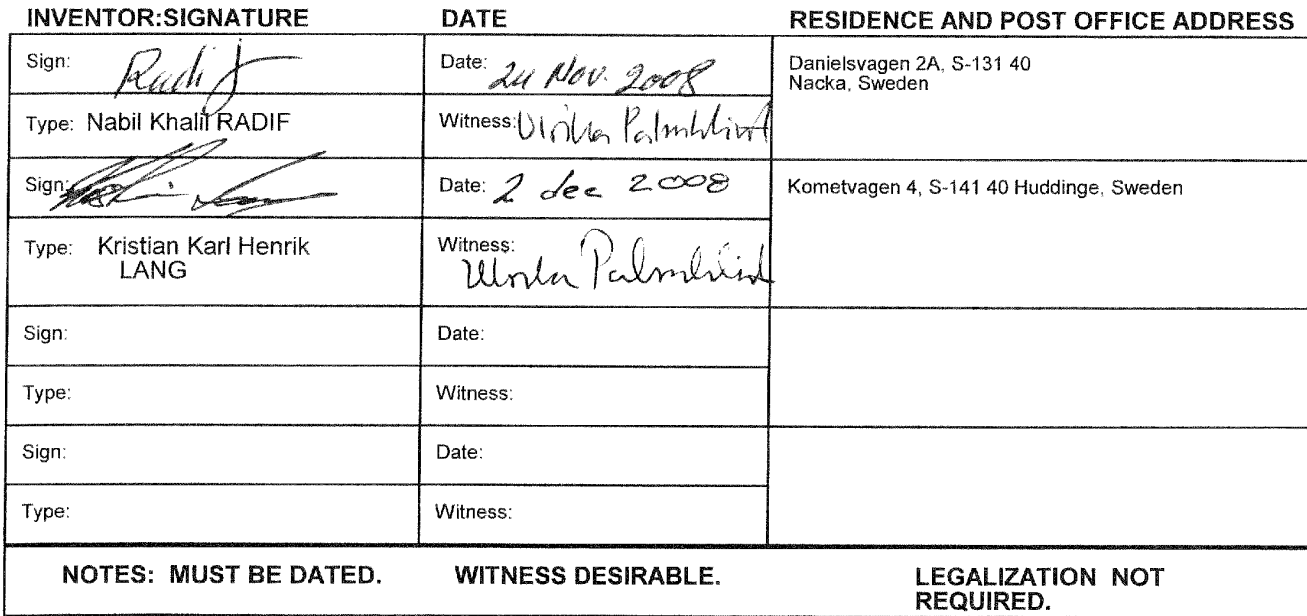 INVENTOR:SIGNATURE DATE RESIDENCE AND POST OFFICE ADDRESS
Sign: Radif Date: 24 Nov. 2008 Danielsvagen 2A, S-131 40
Nacka, Sweden
Type: Nabil Khalil RADIF Witness:
Sign: Date: 2 dec 2008 Kometvagen 4, S-141 40 Huddinge, Sweden
Type: Kristian Karl Henrik
LANG
Witness:
Sign: Date:
Type: Witness:
Sign: Date:
Type: Witness:
NOTES: MUST BE DATED. WITNESS DESIRABLE. LEGALIZATION NOT
REQUIRED.